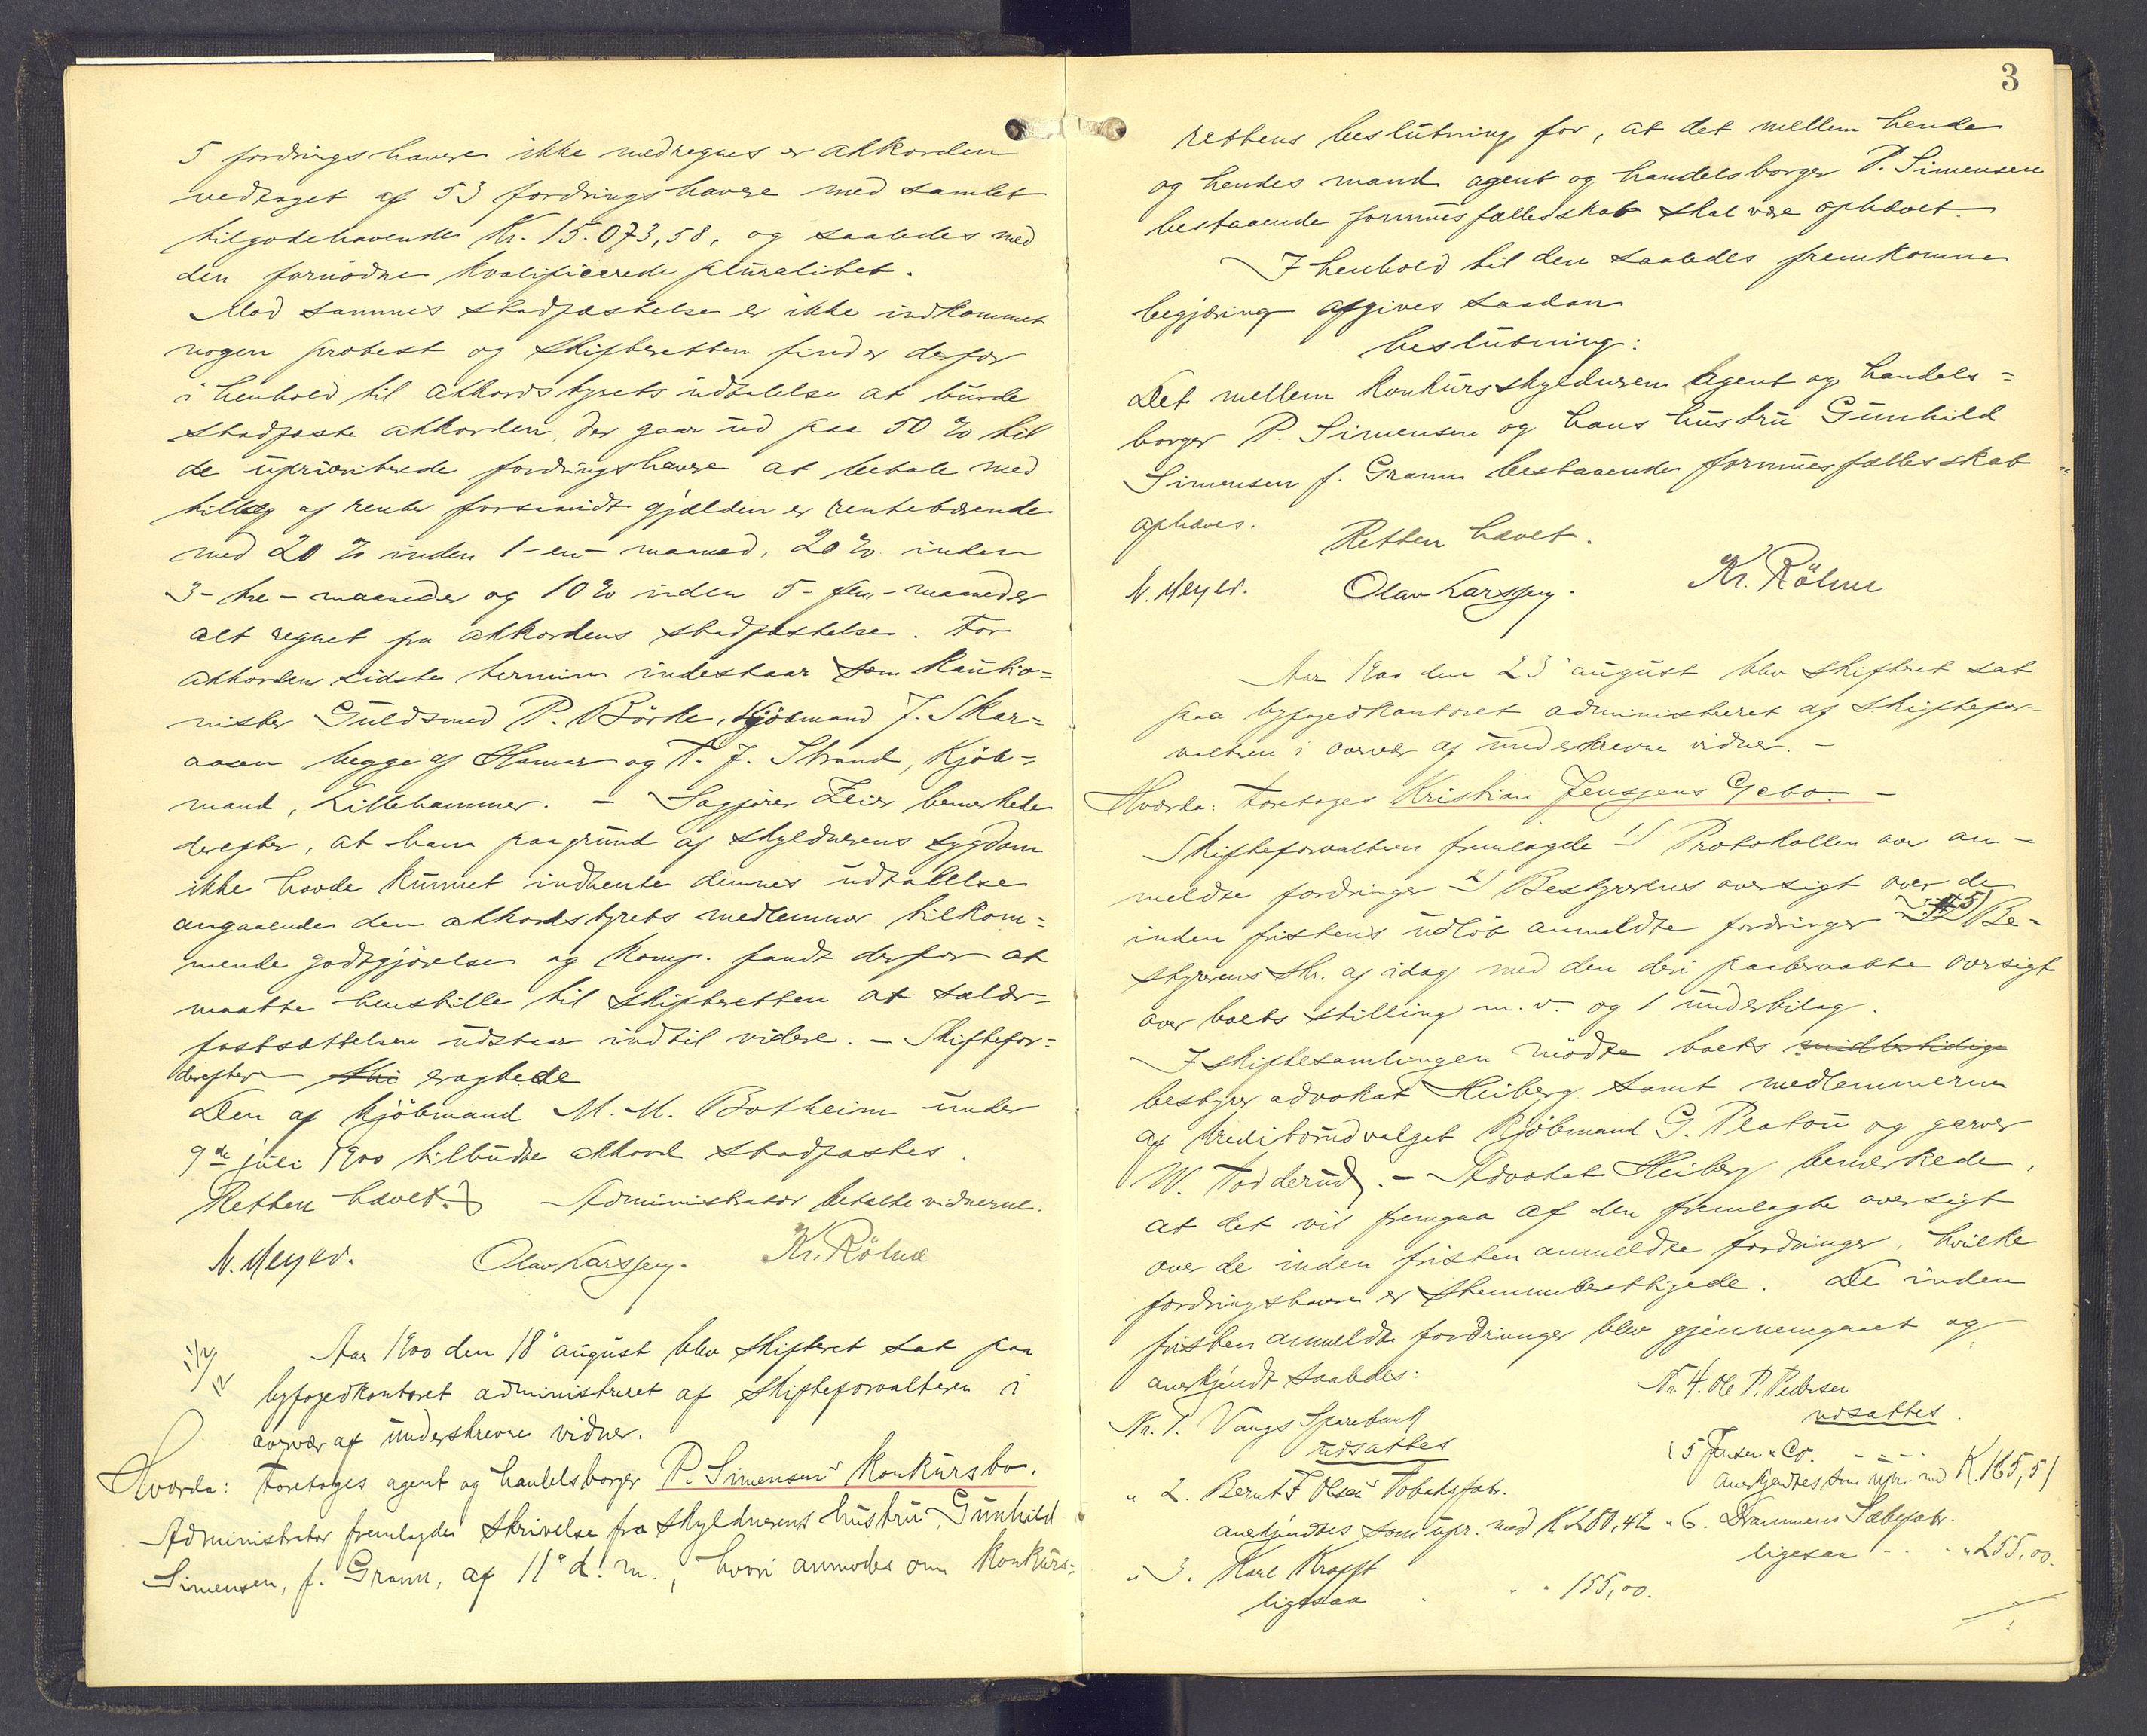 5 fordringshavere ikke medregnes er akkorden
vedtaget af 53 fordringshavere med samlet
tilgodehavende Kr. 15.073,58, og saaledes med
den fornödne kvalificerede pluralitet.
Mod sammes stadfæstelse er ikke indkommet
nogen protest og skifteretten finder derfor
i henhold til akkordstyrets udtalelse at burde
stadfæste akkorden, der gaar ud paa 50 % til
de uprioriterede fordringshavere at betale med
tillæg af renter forsaavidt gjælden er rentebærende
med 20 % inden 1-en- maaned, 20 % inden
3-tre- maaneder og 10 % inden 5-fem-maaneder
alt regnet fra akkordens stadfæstelse. For
akkordens sidste termin indestaar som kautio=
nister Guldsmed P. Börke, Kjöbmand J. Skar=
aasen begge af Hamar og T. J. Strand, Kjöb=
mand, Lillehammer. - Sagförer Zeier bemerkede
derefter, at han paagrund af skyldnerens sygdom
ikke havde kunnet indhente dennes udtalelse
angaaende den akkordstyrets medlemmer tilkom=
mende godtgjörelse og komp. fandt derfor at
maatte henstille til skifteretten at salær=
fastsættelsen udstaar indtil videre. - Skiftefor=
derefter eragtede
Den af kjöbmand M. M. Botheim under
9de juli 1900 tilbudte akkord stadfæstes.
Retten hævet. Administrator betalte vidnerne.
N. Meyer. Olav Larssen. Kr. Röhne
11/2/12
Aar 1900 den 18' august blev skifteret sat paa
byfogedkontoret administreret af skifteforvalteren i
overvær af underskrevne vidner.
Hvorda: Foretoges agent og handelsborger P. Simensens konkursbo.
Administrator fremlagde skrivelse fra skyldnerens hustru, Gunhild
Simensen, f. Gramm, af 11' d. m., hvori anmodes om konkurs=
3
rettens beslutning for, at det mellem hende
og hendes mand agent og handelsborger P. Simensen
bestaaende formuesfællesskab skal være ophævet.
I henhold til den saaledes fremkomne
begjæring afgives saadan
beslutning:
Det mellem konkursskyldneren agent og handels=
borger P. Simensen og hans hustru Gunhild
Simensen f. Gramm bestaaende formuesfællesskab
ophæves. Retten hævet.
N. Meyer. Olav Larssen. Kr. Röhne
Aar 1900 den 23' august blev skifteret sat
paa byfogedkontoret administreret af skiftefor-
valteren i overvær af underskrevne vidner. -
Hvorda: Foretoges Kristian Jenssens Gebo. -
Skifteforvalteren fremlagde 1) Protokollen over an-
meldte fordringer 2) Bestyrerens oversigt over de
inden fristens udlöb anmeldte fordringer 5) Be-
styrerens skr. af idag med den deri paaberaabte oversigt
over boets stilling m. v. og 1 underbilag.
I skiftesamlingen mödte boets midlertidige
bestyrer advokat Heiberg samt medlemmerne
af kreditorudvalget Kjöbmand G. Platou og garver
W. Todderud. - Advokat Heiberg bemerkede,
at det vil fremgaa af den fremlagte oversigt
over de inden fristen anmeldte fordringer, hvilke
fordringshavere er stemmeberettigede. De inden
fristen anmeldte fordringer blev gjennemgaaet og
anerkjendt saaledes:
Nr. 1. Vangs Sparebank
udsattes
" 2. Bernt F. Olsens Tobaksfabr.
anerkjendtes som upr. med Kr 280,42
" 3. Karl Krafft
ligesaa " " 155,00.
Nr. 4. Ole P. Pedersen
udsattes.
" 5 Jensen & Co.
anerkjendtes som upr. med K. 165,51
" 6. Drammens Sæbefabr.
ligesaa " 255,00.